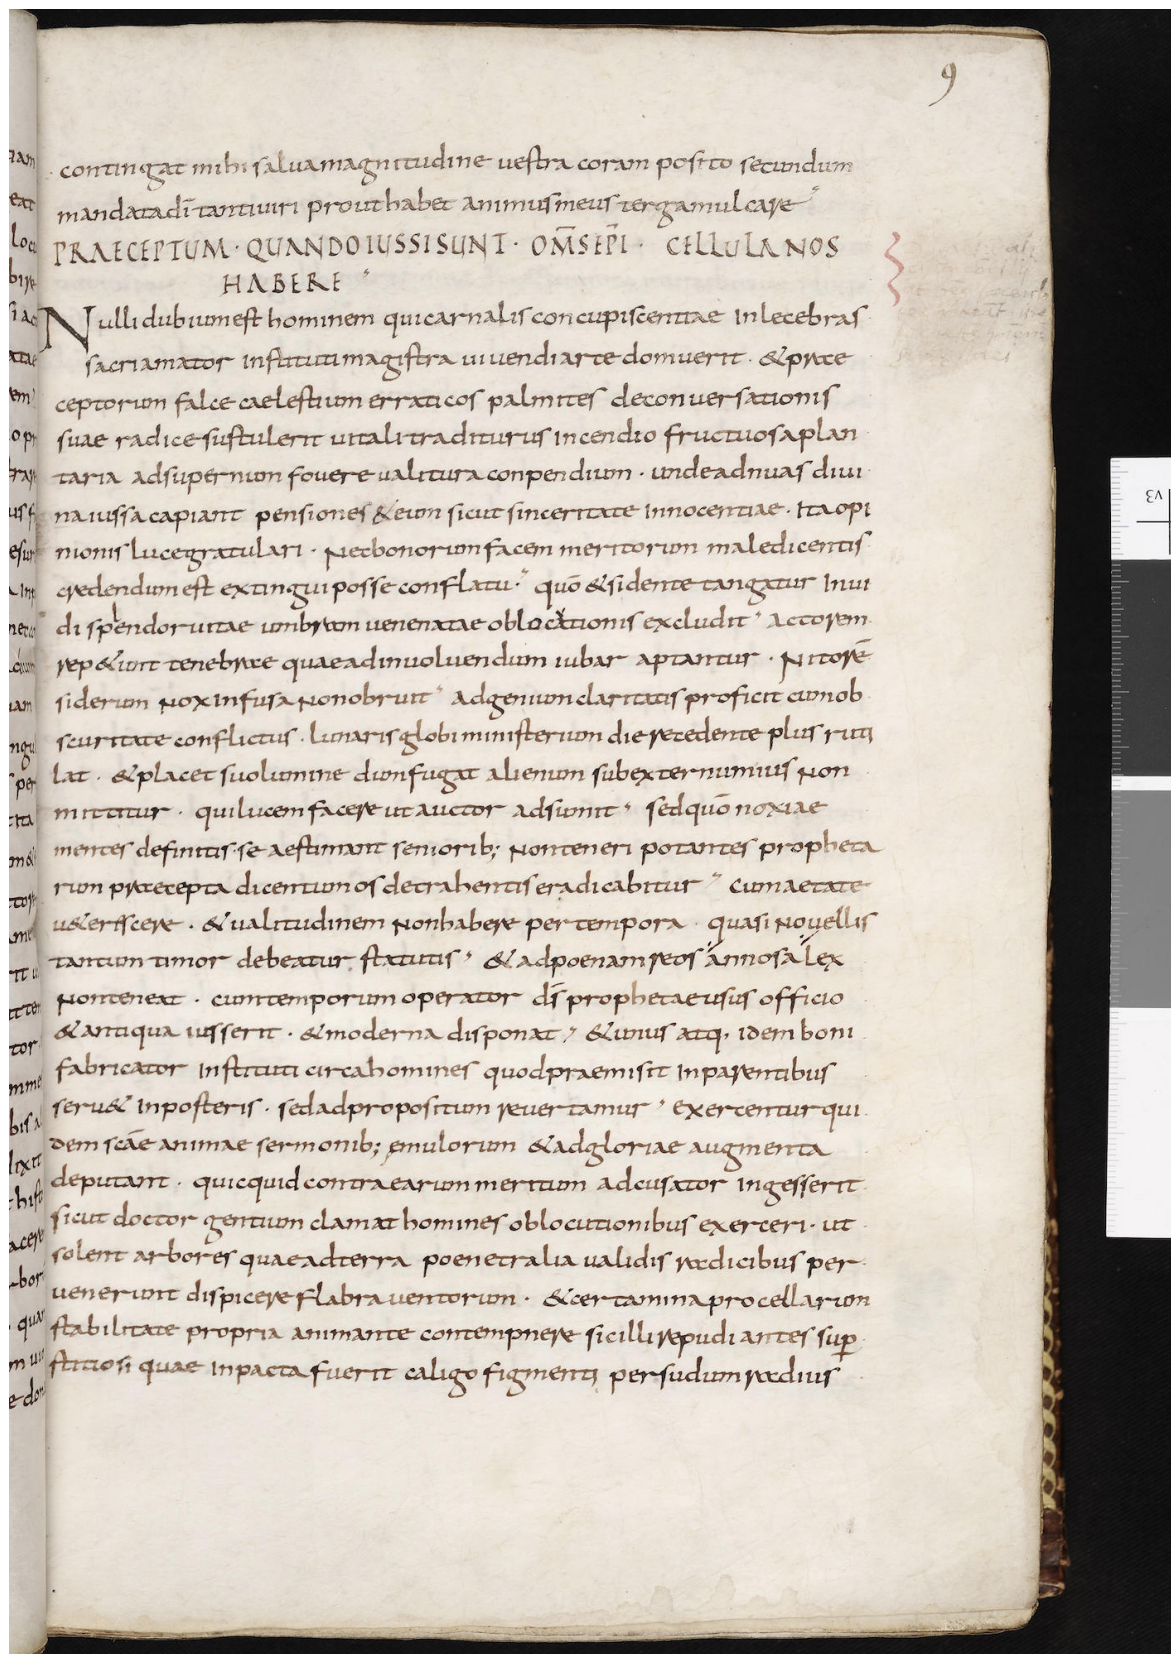 9
contingat mihi salva magnitudine vestra coram posito secundum
mandata dī tanti viri prout habet animus meus terga mulcare
PRAECEPTUM · QUANDO IUSSI SUNT · OM̄S EPĪ · CELLULANOS
HABERE
Nulli dubium est hominem qui carnalis concupiscentiae inlecebras
sacri amator instituti magistra uiuendi arte domuerit · & prae
ceptorum falce caelestium erraticos palmites de conuersationis
suae radice sustulerit uitali traditurus incendio fructuosa plan
taria ad supernum fouere ualitura conpendium · unde adnuas diui
na iussa capiant pensiones & eum sicut sinceritate innocentiae · ita opi
nionis luce gratulari · Nec bonorum facem meritorum maledicentis
credendum est extingui posse conflatu · quō & sidente tangatur inui
di splendor uitae umbram uenenatae oblocutionis excludit actorem
rep&unt tenebrae quae ad inuoluendum iubar aptantur · Nitorē
siderum nox infusa non obruit ad genium claritatis proficit cum ob
scuritate conflictus · lunaris globi ministerium die recedente plus ruti
lat · & placet suo lumine dum fugat alienum sub externum ius non
mittitur · qui lucem facere ut auctor adsumit sed quō noxiae
mentes definitis se aestimant seniorib; non teneri potantes propheta
rum praecepta dicentum os detrahentis eradicabitur cum aetate
u&eriscere · & ualitudinem non habere per tempora · quasi nouellis
tantum timor debeatur statutis & ad poenam reos annosa lex
non teneat · cum temporum operator dS̄ prophetae usus officio
& antiqua iusserit · & moderna disponat & unus atq, idem boni
fabricator instituti circa homines quod praemisit in parentibus
seru& in posteris · sed ad propositum reuertamur exercentur qui
dem scāe animae sermonib; emulorum & ad gloriae augmenta
deputant · quicquid contra earum meritum adcusator ingesserit
sicut doctor gentium clamat homines oblocutionibus exerceri · ut
solent arbores quae ad terra poenetralia validis radicibus per
uenerunt dispicere flabra uentorum · & certamina procellarum
stabilitate propria animante contempnere sic illi repudiantes sup
stitiosi quae inpacta fuerit caligo figmenti per sudum radius